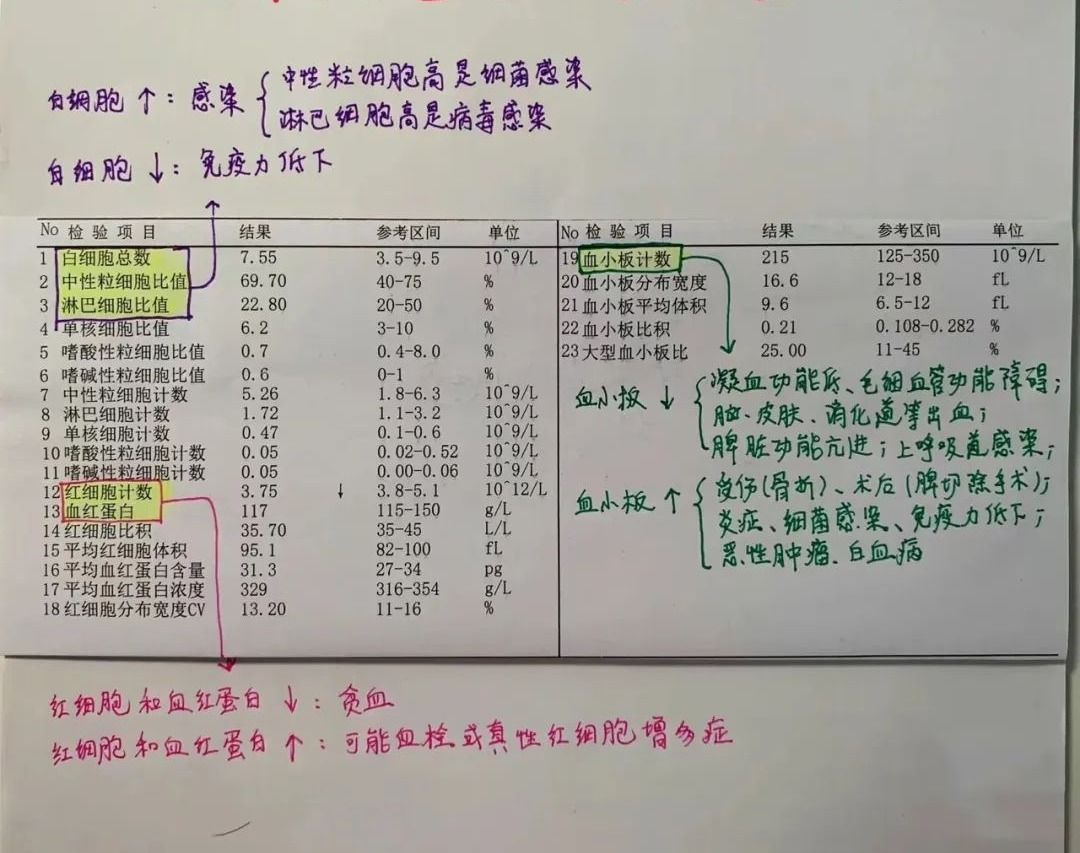 白细胞 ↑：感染 { 中性粒细胞高是细菌感染
淋巴细胞高是病毒感染
白细胞 ↓：免疫力低下
No 检验项目 结果 参考区间 单位
1 白细胞总数 7.55 3.5-9.5 10^9/L
2 中性粒细胞比值 69.70 40-75 %
3 淋巴细胞比值 22.80 20-50 %
4 单核细胞比值 6.2 3-10 %
5 嗜酸性粒细胞比值 0.7 0.4-8.0 %
6 嗜碱性粒细胞比值 0.6 0-1 %
7 中性粒细胞计数 5.26 1.8-6.3 10^9/L
8 淋巴细胞计数 1.72 1.1-3.2 10^9/L
9 单核细胞计数 0.47 0.1-0.6 10^9/L
10 嗜酸性粒细胞计数 0.05 0.02-0.52 10^9/L
11 嗜碱性粒细胞计数 0.05 0.00-0.06 10^9/L
12 红细胞计数 3.75 ↓ 3.8-5.1 10^12/L
13 血红蛋白 117 115-150 g/L
14 红细胞比积 35.70 35-45 L/L
15 平均红细胞体积 95.1 82-100 fL
16 平均血红蛋白含量 31.3 27-34 pg
17 平均血红蛋白浓度 329 316-354 g/L
18 红细胞分布宽度CV 13.20 11-16 %
No 检验项目 结果 参考区间 单位
19 血小板计数 215 125-350 10^9/L
20 血小板分布宽度 16.6 12-18 fL
21 血小板平均体积 9.6 6.5-12 fL
22 血小板比积 0.21 0.108-0.282 %
23 大型血小板比 25.00 11-45 %
血小板 ↓ { 凝血功能低、毛细血管功能障碍；
脑、皮肤、消化道等出血；
脾脏功能亢进；上呼吸道感染；
血小板 ↑ { 受伤(骨折)、术后(脾切除手术)；
炎症、细菌感染、免疫力低下；
恶性肿瘤、白血病
红细胞和血红蛋白 ↓：贫血
红细胞和血红蛋白 ↑：可能血栓或真性红细胞增多症